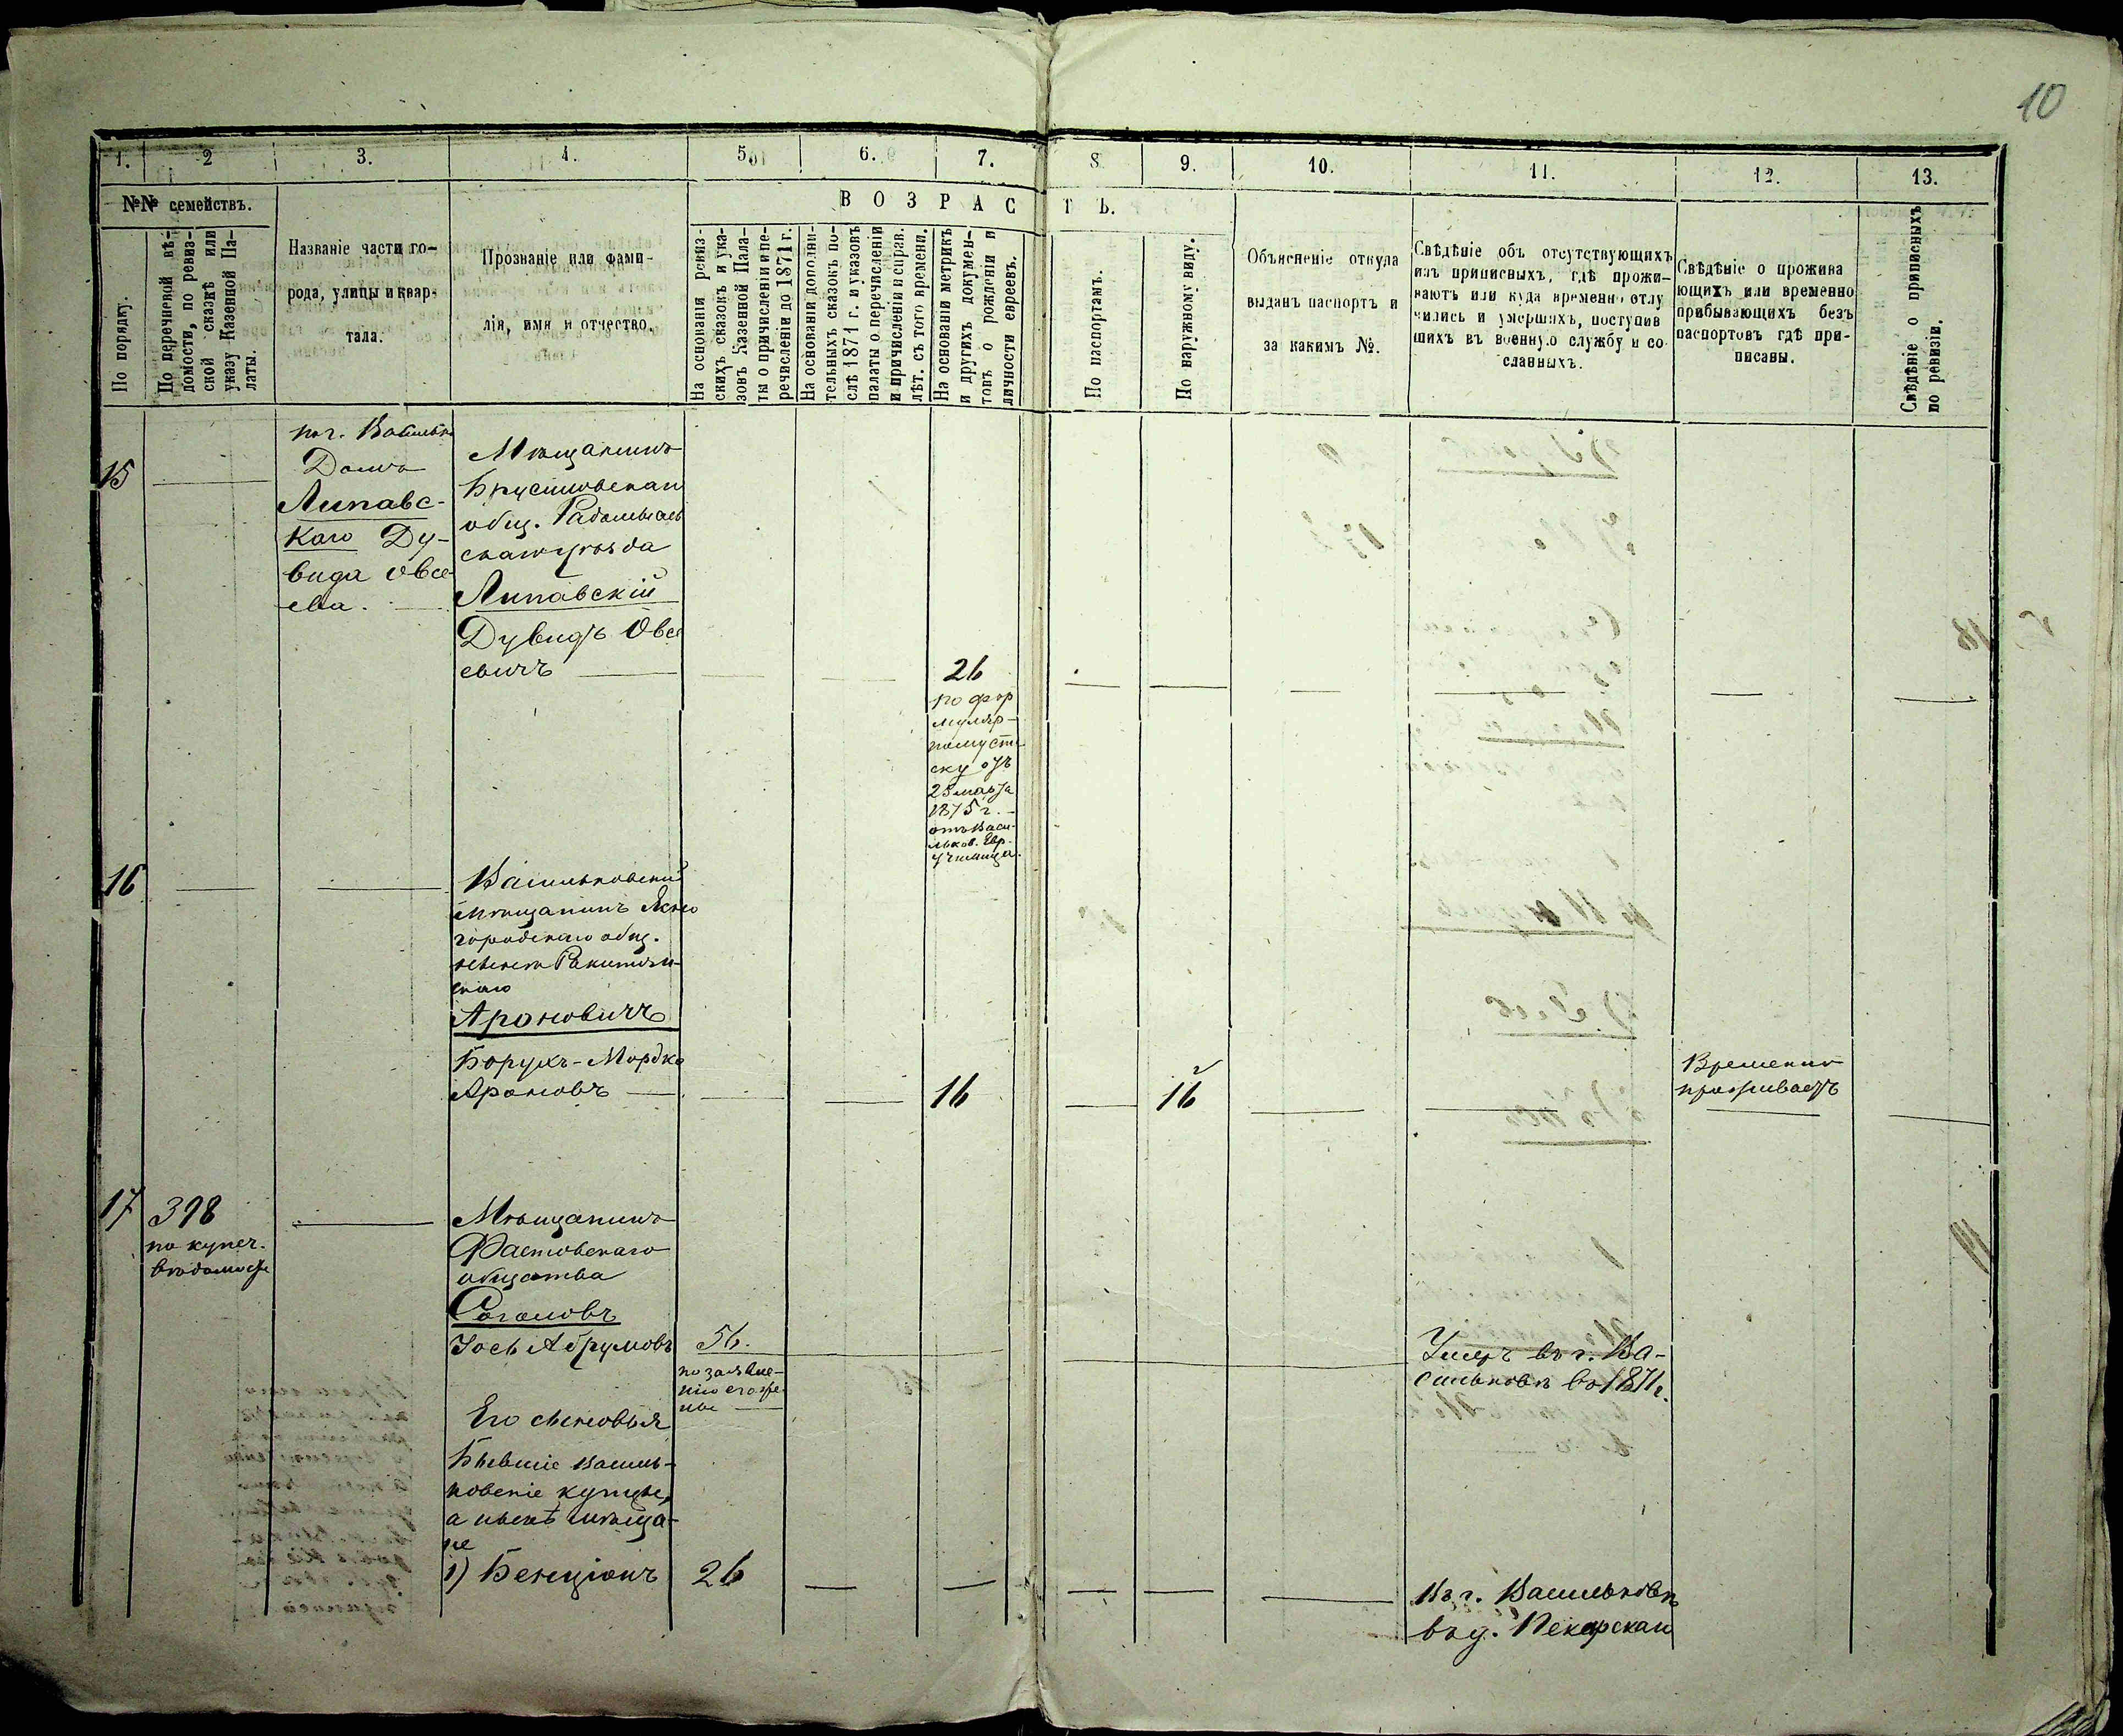 10
1.
2
3.
4.
5
6.
7.
8
9.
10.
11.
12.
13.
№№ семействъ.
В О З Р А С Т Ъ.
По порядку.
По перечневой вѣ-
домости, по ревиз-
ской сказкѣ или
указу Казенной Па-
латы.
Названіе части го-
рода, улицы и квар-
тала.
Прозваніе или фами-
лія, имя и отчество.
На основаніи ревиз-
скихъ сказокъ и ука-
зовъ Казенной Пала-
ты о причисленіи и пе-
речисленіи до 1871 г.
На основаніи дополни-
тельныхъ сказокъ по-
слѣ 1871 г. и указовъ
палаты о перечисленіи
и причисленіи и справ.
лѣт. съ того времени.
На основаніи метрикъ
и другихъ докумен-
товъ о рожденіи и
личности евреевъ.
По паспортамъ.
По наружному виду.
Объясненіе откуда
выданъ паспортъ и
за какимъ №.
Свѣдѣніе объ отсутствующихъ
изъ приписныхъ, гдѣ прожи-
ваютъ или куда временно отлу
чились и умершихъ, поступив
шихъ въ военную службу и со
сланныхъ.
Свѣдѣніе о прожива
ющихъ или временно
прибывающихъ безъ
паспортовъ гдѣ при-
писаны.
Свѣдѣніе о приписныхъ
по ревизіи.
15
Домъ
Липавс-
каго Ду-
вида Овсе-
ева.
Мѣщанинъ
Брусиловскаго
общ. Радомысль
скаго уѣзда
Липавскій
Дувидъ Овсе
евичъ
26
по фор
муляр-
ному спи
ску отъ
28 марта
1875 г.
отъ Васи-
льков. Евр.
училища.
16
Васильковскій
мѣщанинъ Ясно
городскаго общ.
Ракитян-
скаго
Ароновичъ
Борухъ-Мордко
Ароновъ
16
16
Временно
проживаетъ
17
398
по купеч.
вѣдомости
Мѣщанинъ
Фастовскаго
общества
Соголовъ
Іось Абрумовъ
56.
по заявле-
нію его же
ны
Умеръ въ г. Ва-
сильковѣ въ 1871 г.
Его сыновья
Бывшіе Василь-
ковскіе купцы,
а нынѣ мѣща-
не
1) Бенціонъ
26
Въ г. Васильковѣ
въ д. Пекарскаго